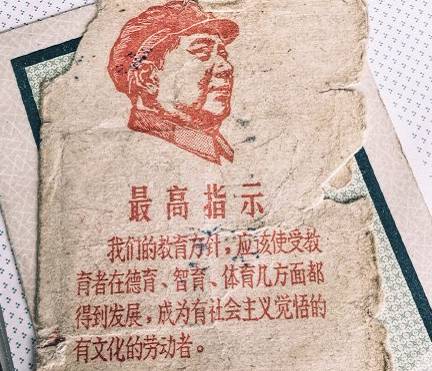 最高指示
我们的教育方针，应该使受教
育者在德育、智育、体育几方面都
得到发展，成为有社会主义觉悟的
有文化的劳动者。